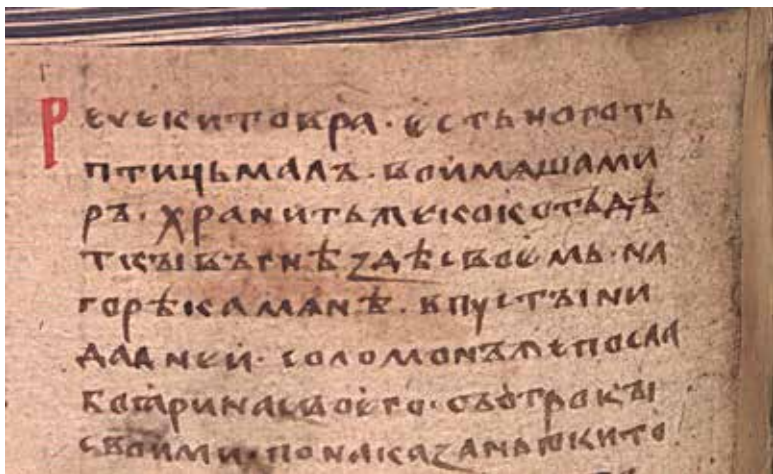 Рече китовра· есть ноготь
птиць малъ· во имаша ми
ръ· хранить же кокотъ дѣ
ткы въ гнѣздѣ своемь· на
горѣ камянѣ· в пустыни
далнеи· соломонъ же посла
боꙗрина своего· съ отрокы
своими· по наказанью кито